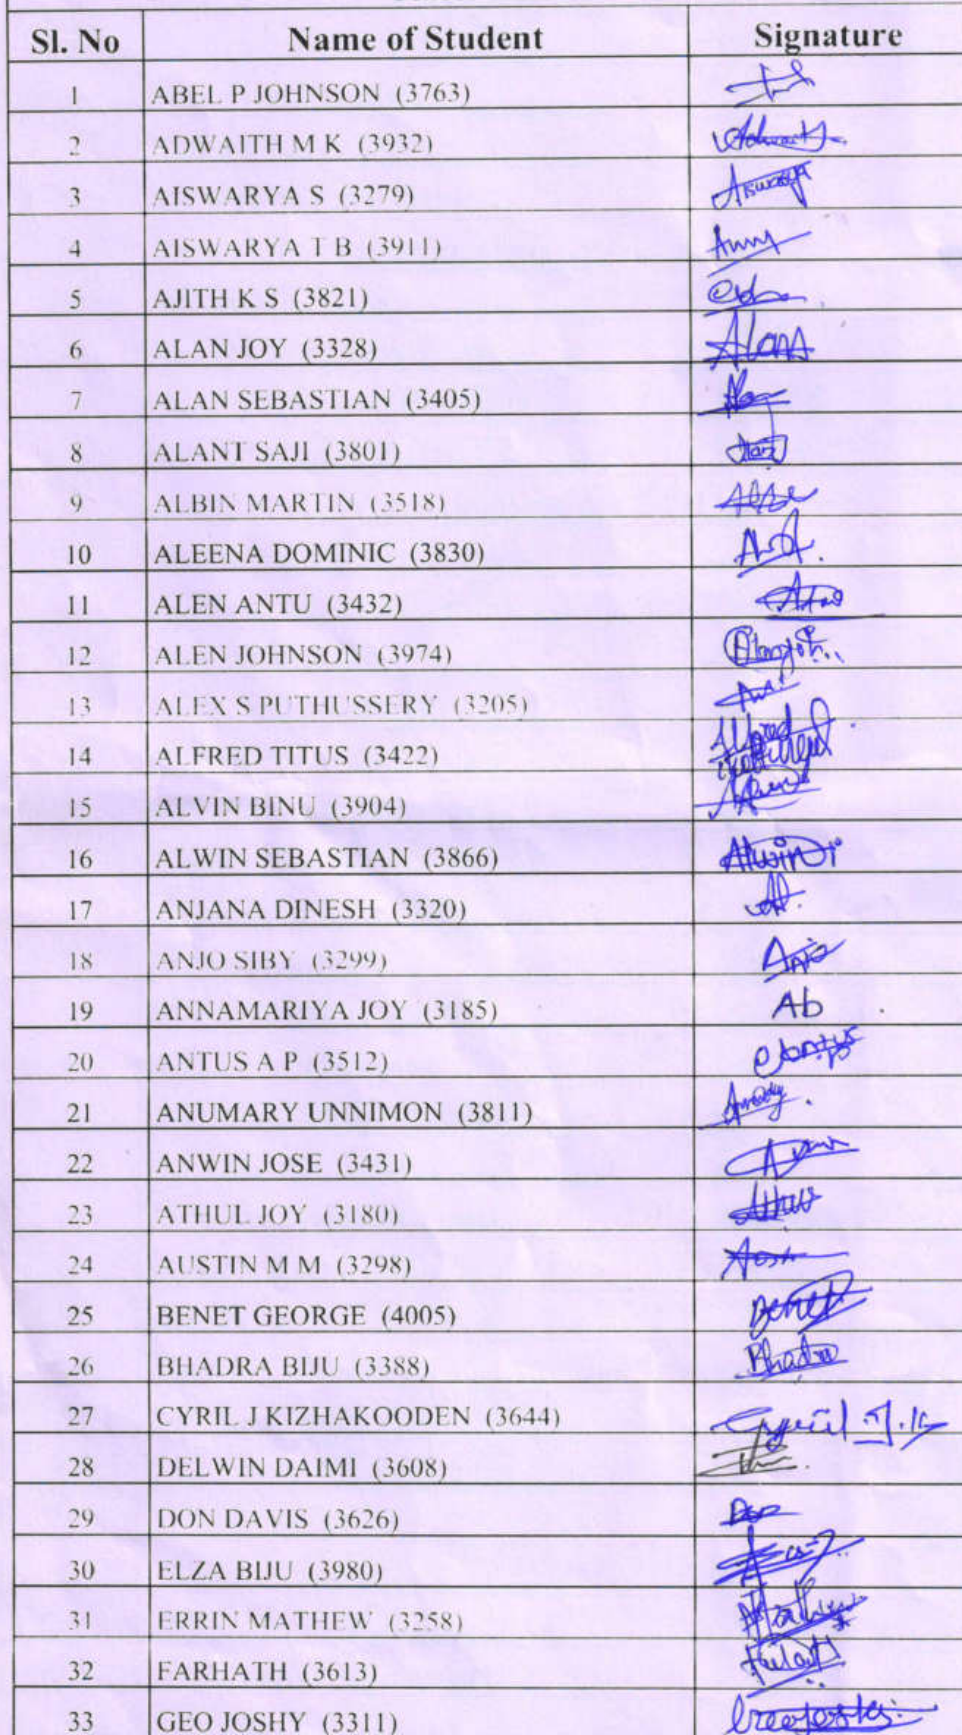 Sl. No Name of Student Signature
1 ABEL P JOHNSON (3763)
2 ADWAITH M K (3932) Adwaith
3 AISWARYA S (3279) Aiswarya
4 AISWARYA T B (3911)
5 AJITH K S (3821)
6 ALAN JOY (3328)
7 ALAN SEBASTIAN (3405)
8 ALANT SAJI (3801)
9 ALBIN MARTIN (3518)
10 ALEENA DOMINIC (3830)
11 ALEN ANTU (3432)
12 ALEN JOHNSON (3974)
13 ALEX S PUTHUSSERY (3205)
14 ALFRED TITUS (3422)
15 ALVIN BINU (3904)
16 ALWIN SEBASTIAN (3866)
17 ANJANA DINESH (3320)
18 ANJO SIBY (3299) Anjo
19 ANNAMARIYA JOY (3185) Ab
20 ANTUS A P (3512)
21 ANUMARY UNNIMON (3811)
22 ANWIN JOSE (3431)
23 ATHUL JOY (3180)
24 AUSTIN M M (3298)
25 BENET GEORGE (4005) Benet
26 BHADRA BIJU (3388) Bhadra
27 CYRIL J KIZHAKOODEN (3644) Cyril J.K
28 DELWIN DAIMI (3608)
29 DON DAVIS (3626) Don
30 ELZA BIJU (3980)
31 ERRIN MATHEW (3258)
32 FARHATH (3613)
33 GEO JOSHY (3311)